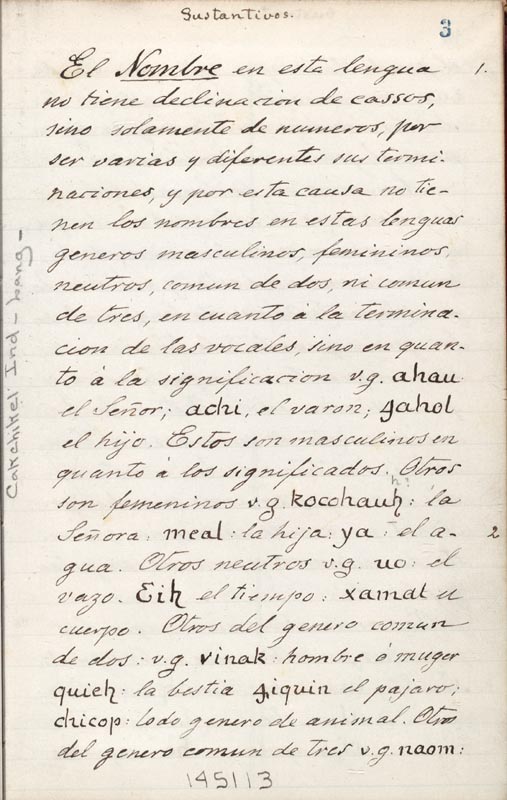 Sustantivos.
3
El Nombre en esta lengua 1.
no tiene declinacion de cassos,
sino solamente de numeros, por
ser varias y diferentes sus termi-
naciones, y por esta causa no tie-
nen los nombres en estas lenguas
generos masculinos, femininos,
neutros, comun de dos, ni comun
de tres, en cuanto à la termina-
cion de las vocales, sino en quan-
to à la significacion v.g. ahau
el Señor; achi, el varon; 4ahol
el hijo. Estos son masculinos en
quanto à los significados. Otros
son femeninos v.g. xocohauh : la
Señora : meal : la hija : ya : el a- 2
gua. Otros neutros v.g. uo : el
vazo. Eih el tiempo : xamat u
cuerpo. Otros del genero comun
de dos : v.g. vinak : hombre ò muger
quieh : la bestia 4iquin el pajaro;
chicop : todo genero de animal. Otros
del genero comun de tres v.g. naom :
Cakchikel Ind - Lang -
145113